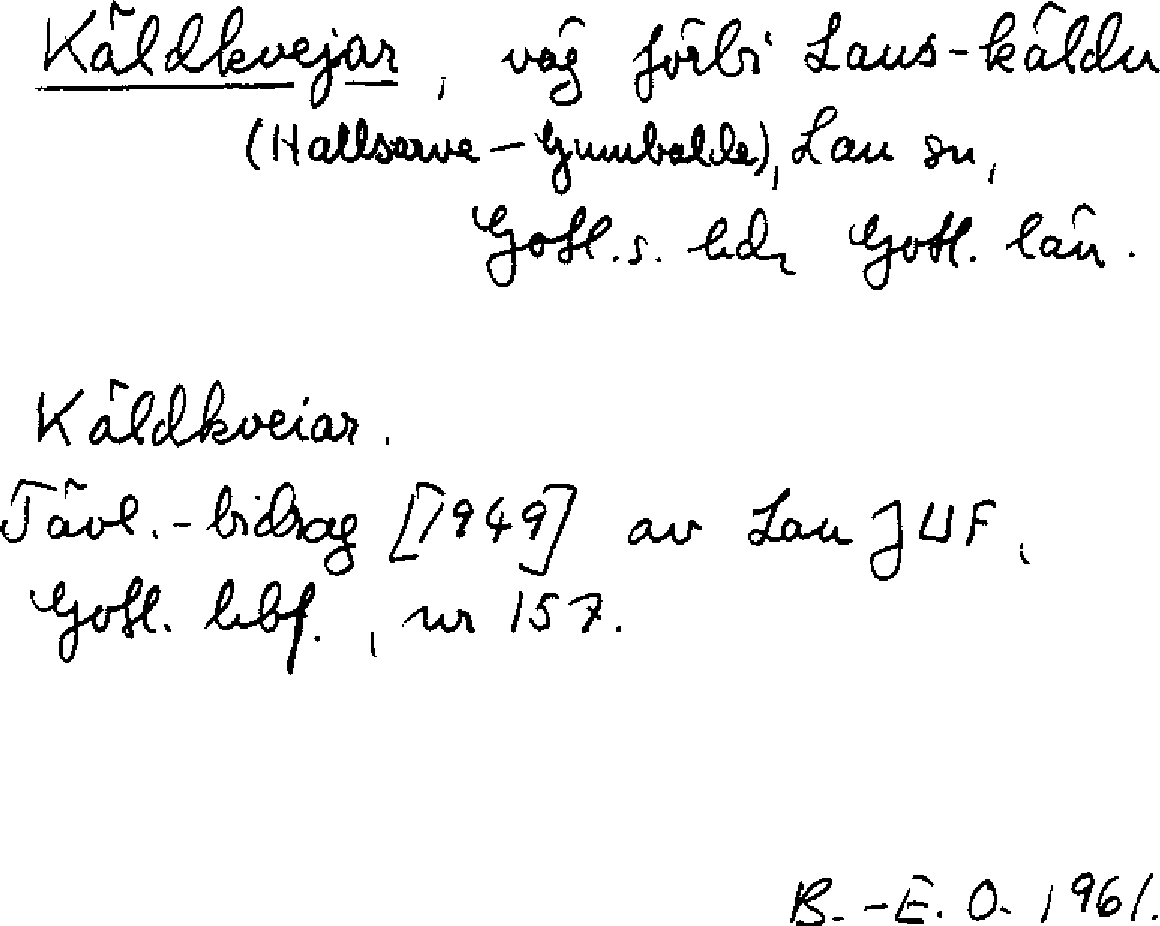 Käldkvejar, väg förbi Laus-käldu
(Hallsarve – Gumbalde), Lau sn,
Gotl. s. hdr Gotl. län.
Käldkveiar.
Tävl.-bidrag [1949] av Lau JUF,
Gotl. hbf., nr 157.
B.-E. O. 1961.